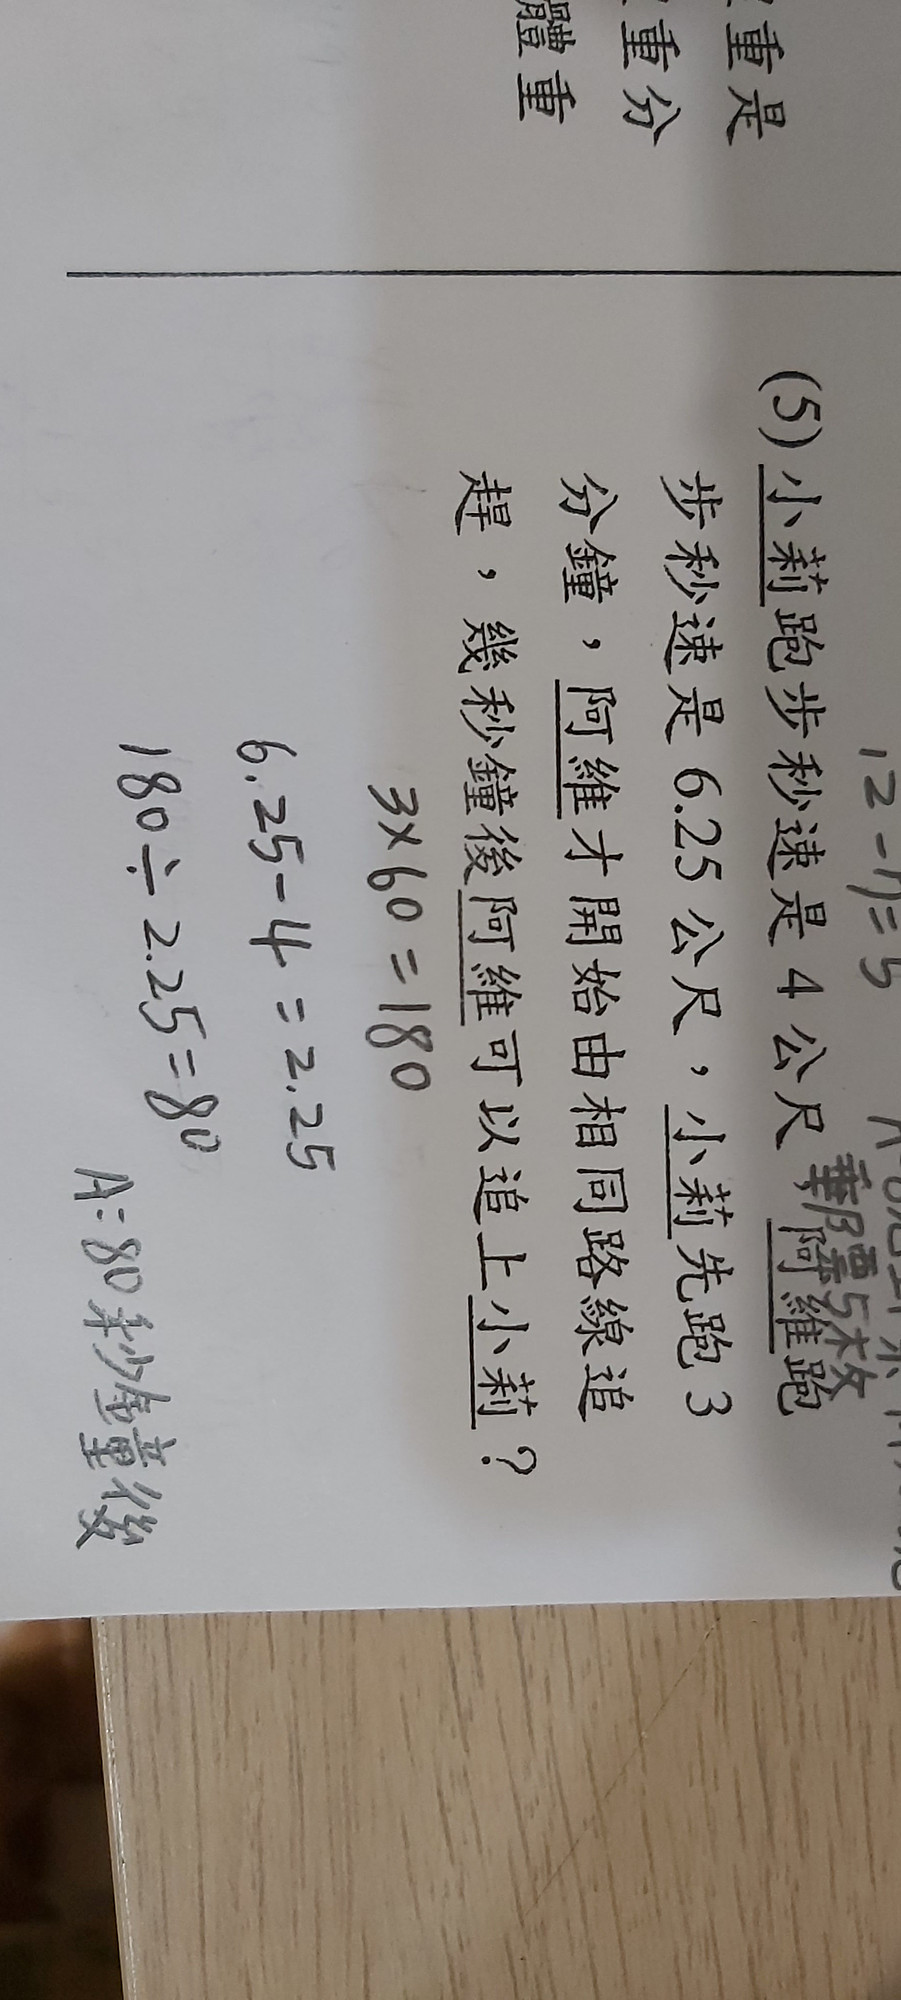 重是
重分
體重
12-7=5
(5)小莉跑步秒速是4公尺,阿維跑
步秒速是6.25公尺,小莉先跑3
分鐘,阿維才開始由相同路線追
趕,幾秒鐘後阿維可以追上小莉?
3×60=180
6.25-4=2.25
180÷2.25=80
A:80秒鐘後